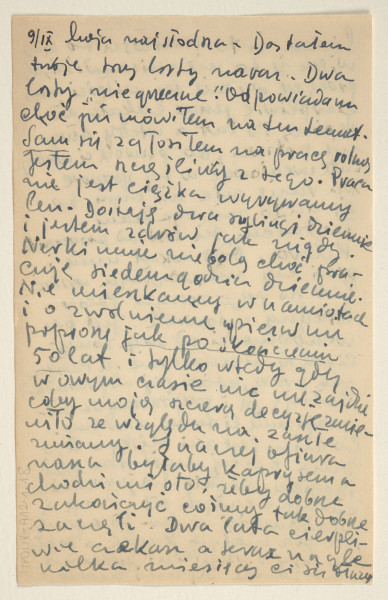 9/IX Moja najsłodsza - Dostałem
twoje trzy listy naraz. Dwa
listy "niegrzeczne". Odpowiadam
choć już mówiłem na ten temat.
Sam się zgłosiłem na pracę rolną
Jestem szczęśliwy z tego. Praca
nie jest ciężka wyrywamy
len. Dostaję dwa szylingi dziennie
i jestem zdrów jak nigdy.
Nerki mnie nie bolą choć pra-
cuję siedem godzin dziennie.
Nie mieszkamy w namiotach
i o zwolnienie wpierw nie
poproszę jak po skończeniu
50 lat i tylko wtedy gdy
w owym czasie nic nie zajdzie
coby moją szczerą decyzję zmie-
niło ze względu na zaszłe
zmiany. Inaczej ofiara
nasza byłaby kaprysem a
chodzi mi o to, żeby dobrze
zakończyć cośmy tak dobrze
zaczęli. Dwa lata cierpli-
wie czekasz a teraz nagle
kilka miesięcy ci się